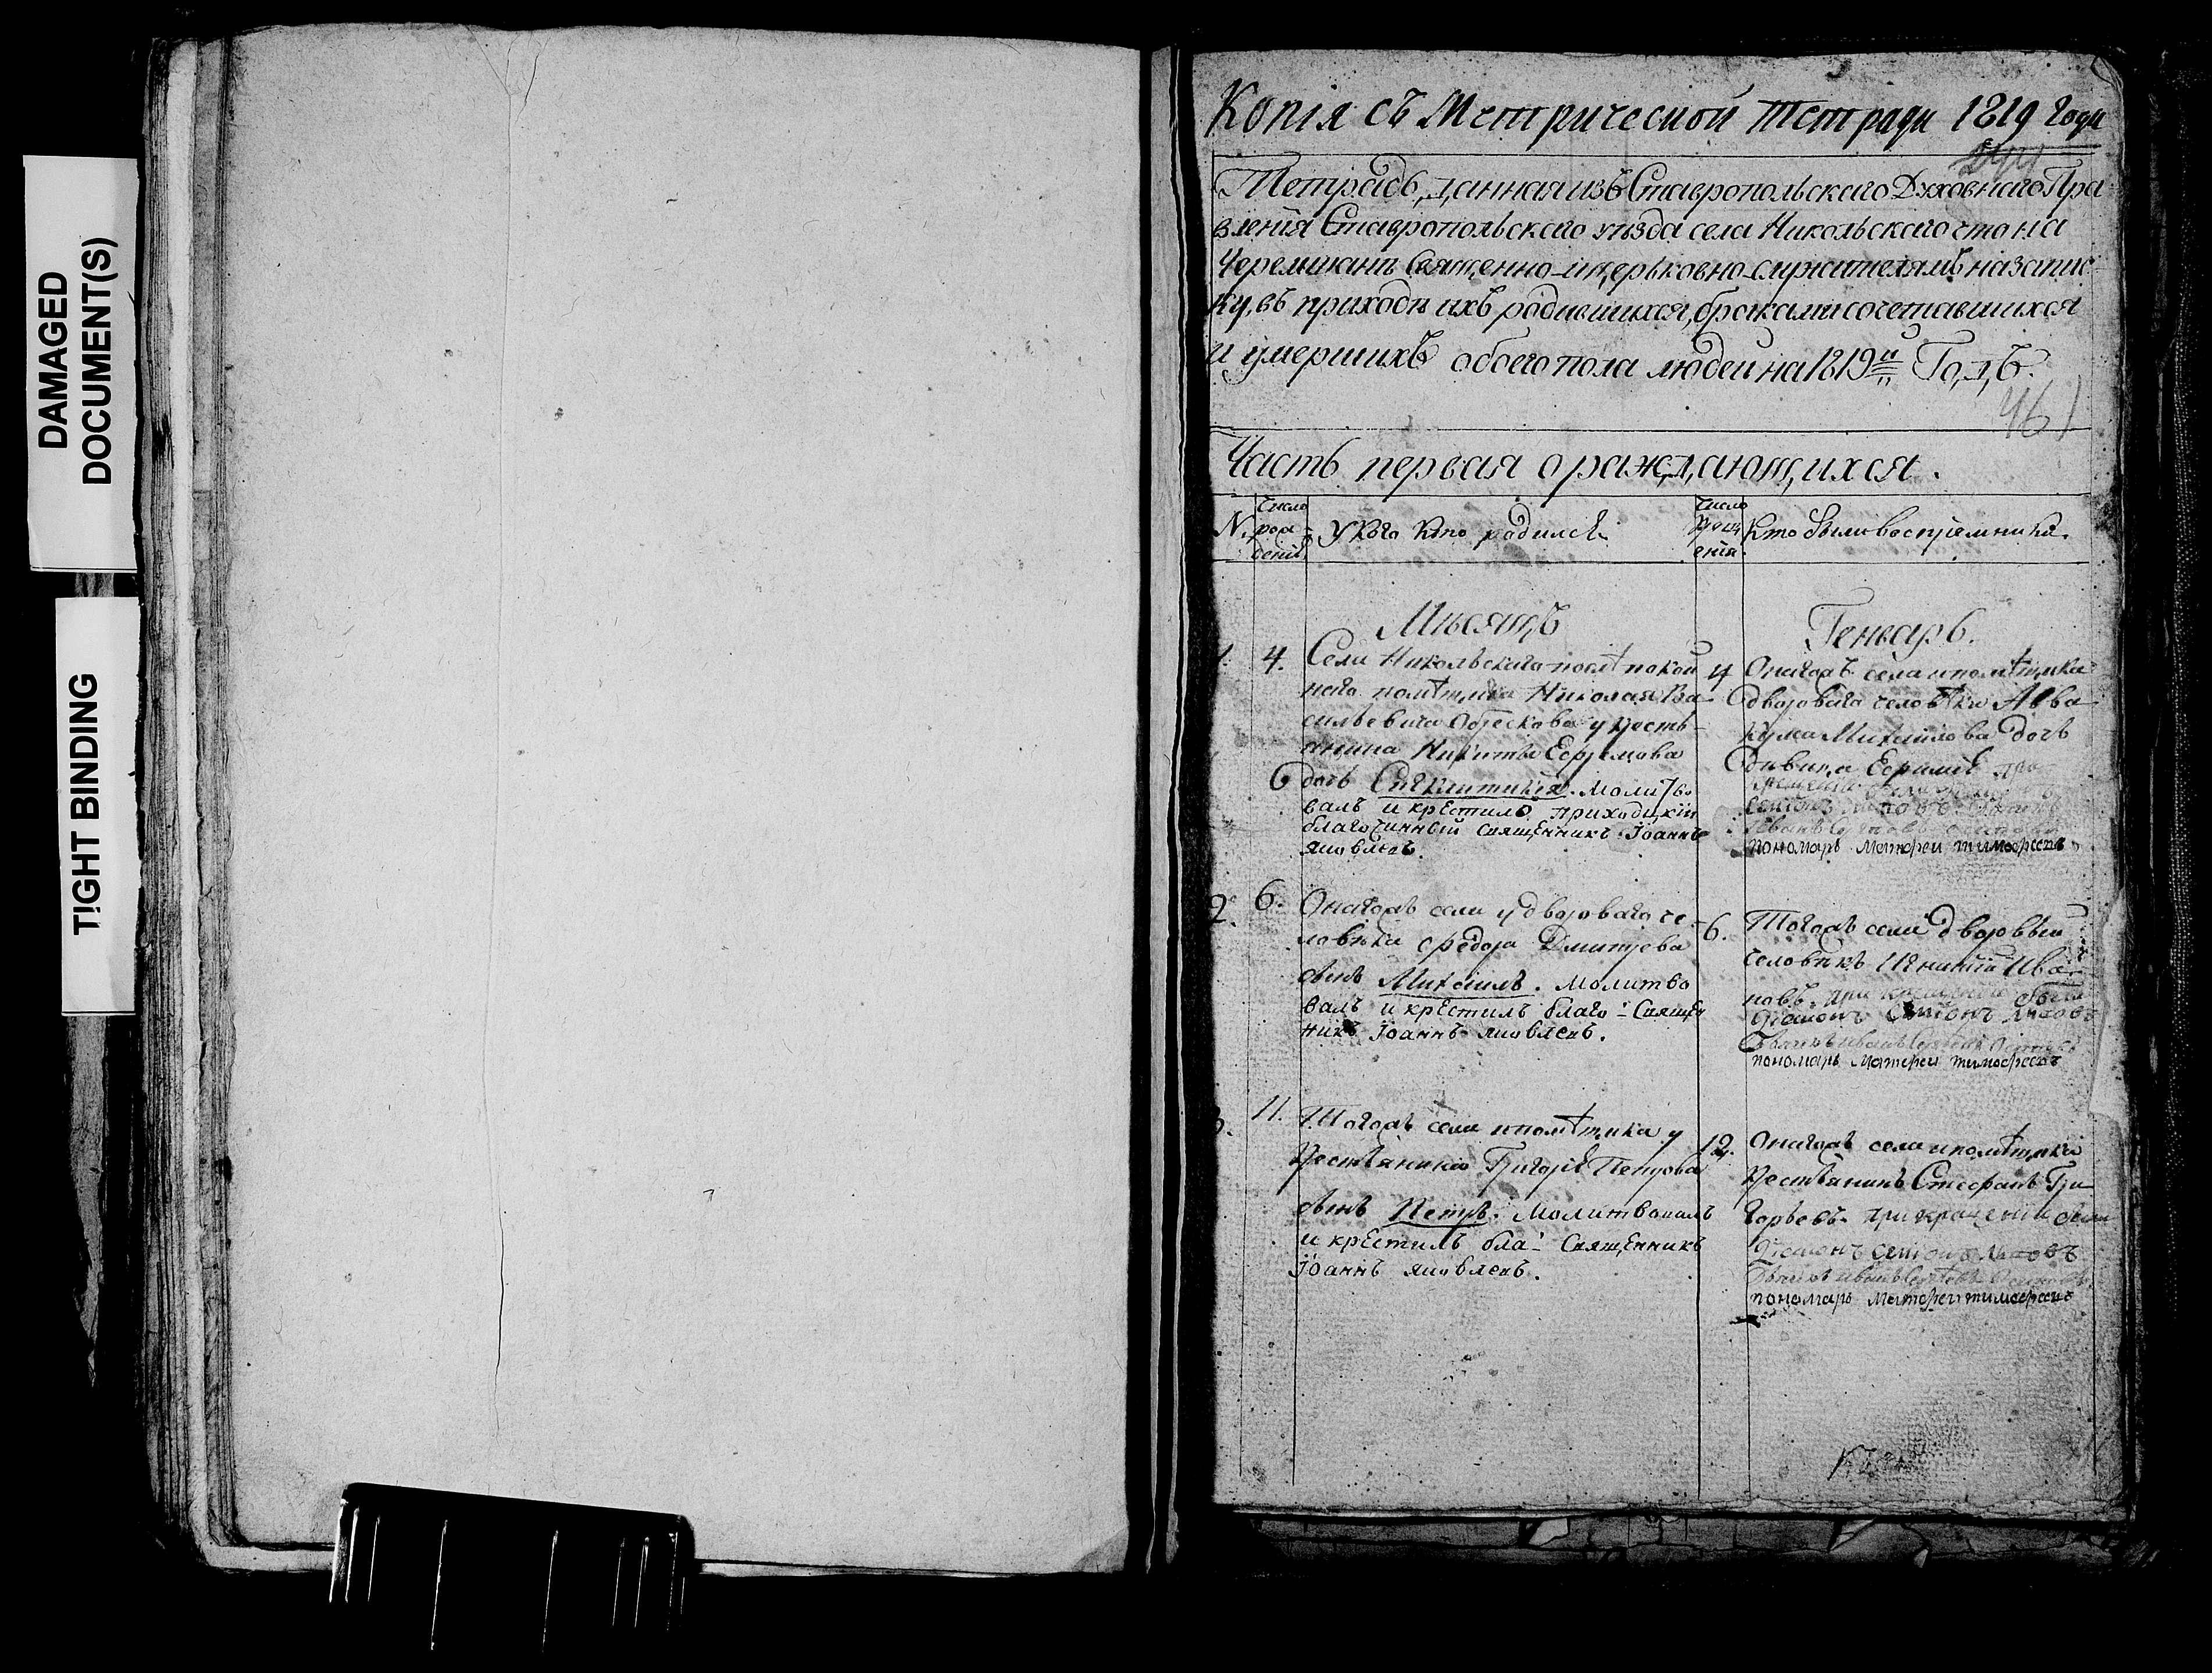 DAMAGED
DOCUMENT(S)
TIGHT BINDING
Копія съ Метрической тетради 1819 года
Тетрадь, данная изъ Ставропольскаго Духовнаго Пра
вленія Ставропольскаго уѣзда села Никольскаго что на
Черемшанѣ Священно-и церьковно-служителямъ на запис-
ку, въ приходѣ ихъ родившихся, браками сочетавшихся
и умершихъ обоего пола людей на 1819й Годъ.
461
Часть первая о раждающихся.
N.
число рож дения
У кого кто родился
число крещ ения
Кто были воспріемники.
Мѣсяцъ
Геньварь.
1. 4.
Села Никольскаго покой
наго помѣщика Николая Ва
сильевича Обрескова у кресть
янина Никиты Ефремова
дочь Синклитикия. Молитво
валъ и крЕстилъ приходцкїй
благочинный священникъ Їоаннъ
яковлевъ.
4
Онагожъ села и помѣщика
двороваго человѣка Авва
кума Михайлова дочь
дѣвица
пономарь Матфеи тимофеевъ
2. 6.
Онагожъ села у двороваго че-
ловѣка Федора Дмитрева
сынъ Михаилъ. Молитво
валъ и крЕстилъ благо: Священ
никъ Їоаннъ яковлевъ.
6.
Тогожъ села дворовый
человѣкъ Игнатій Ива-
новъ. при крещеніи были
Диаконъ Семїонъ
пономарь Матфеи тимофеевъ
3. 11.
Тогожъ села и помѣщика у
крестьянина Григорья Петрова
сынъ Петръ. Молитвовалъ
и крЕстилъ бла: Священникъ
Їоаннъ яковлевъ.
12.
Онагожъ села и помѣщика
крестьянинъ Стефанъ Гри
горьевъ. при крещеніи были
Диаконъ Семїонъ
пономарь Матфеи тимофеевъ